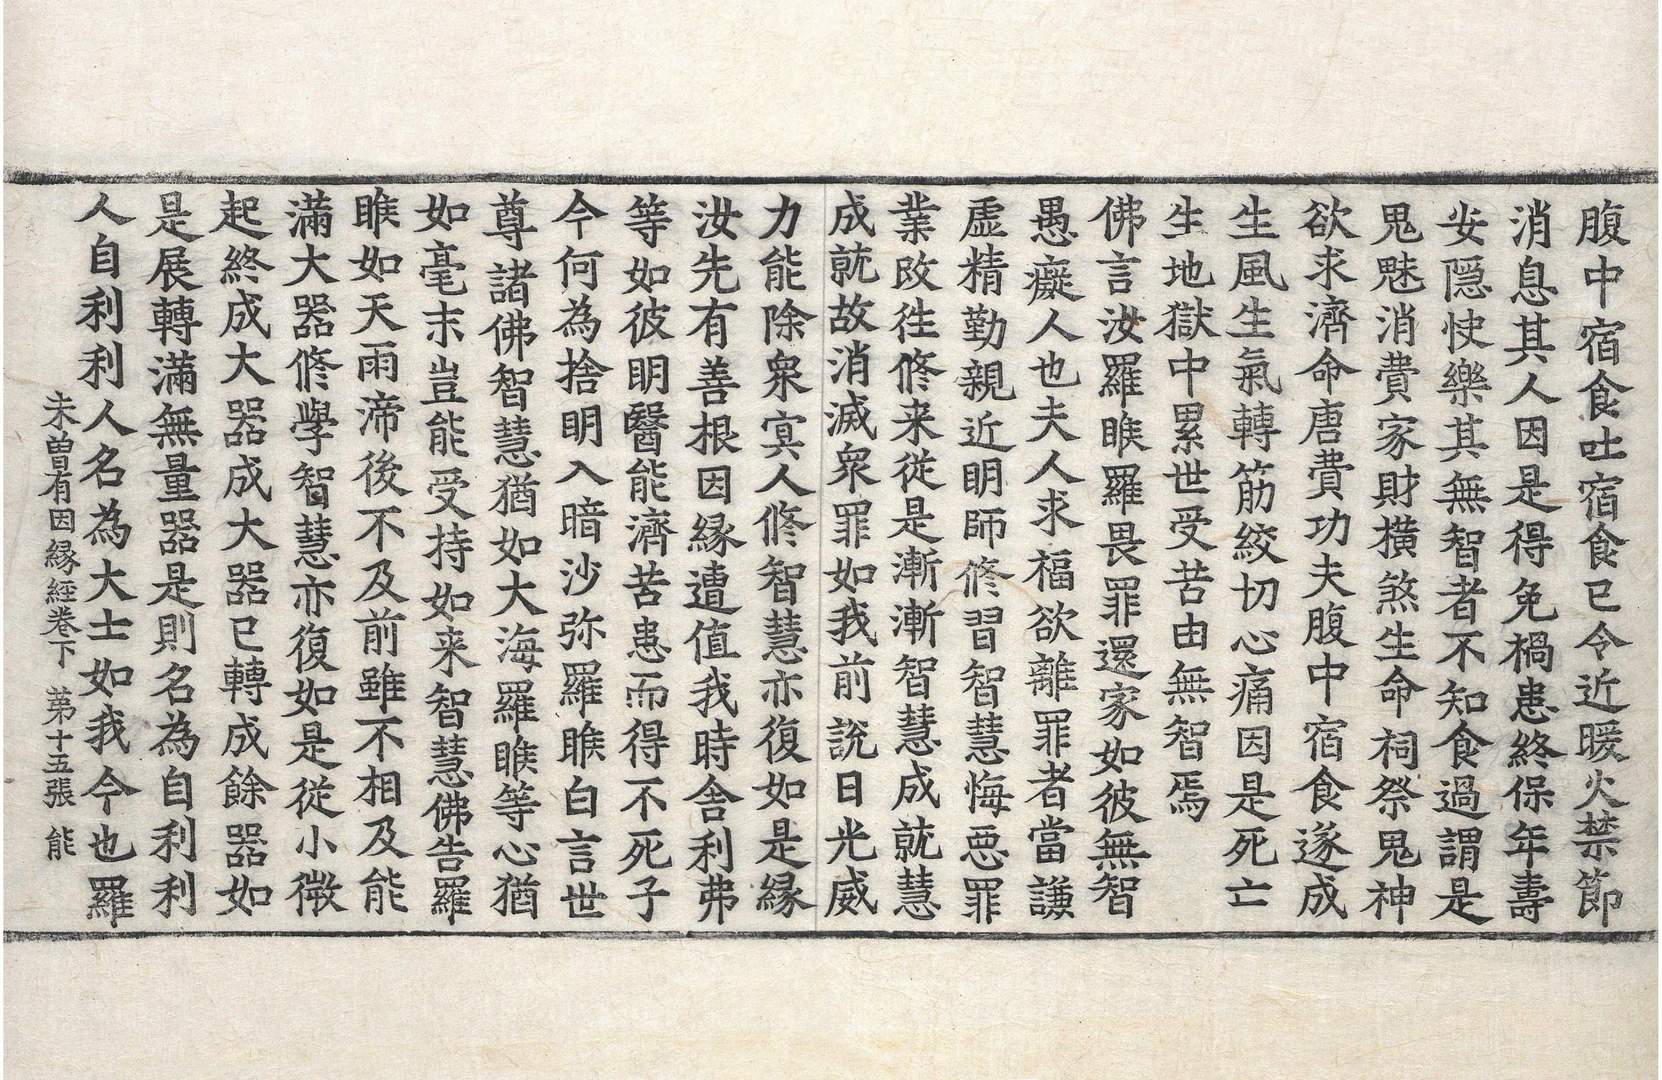 腹中宿食吐宿食已令近暖火禁節
消息其人因是得免禍患終保年壽
安隱快樂其無智者不知食過謂是
鬼魅消費家財橫煞生命祠祭鬼神
欲求濟命唐費功夫腹中宿食遂成
生風生氣轉筋絞切心痛因是死亡
生地獄中累世受苦由無智焉
佛言汝羅睺羅畏罪還家如彼無智
愚癡人也夫人求福欲離罪者當謙
虛精勤親近明師修習智慧悔惡罪
業改往修来從是漸漸智慧成就慧
成就故消滅衆罪如我前說日光威
力能除衆冥人修智慧亦復如是緣
汝先有善根因緣遭值我時舍利弗
等如彼明醫能濟苦患而得不死子
今何為捨明入暗沙弥羅睺白言世
尊諸佛智慧猶如大海羅睺等心猶
如毫末豈能受持如来智慧佛告羅
睺如天雨渧後不及前雖不相及能
滿大器修學智慧亦復如是從小微
起終成大器成大器已轉成餘器如
是展轉滿無量器是則名為自利利
人自利利人名為大士如我今也羅
未曾有因緣經卷下 第十五張 能